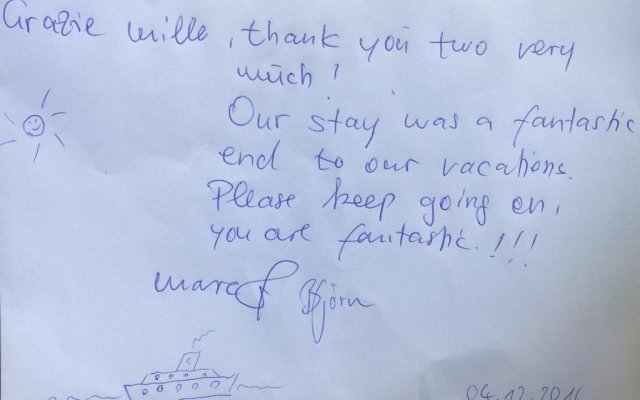 Grazie mille, thank you two very
much!
Our stay was a fantastic
end to our vacations.
Please keep going on,
you are fantastic.!!!
Marc & Björn
04.12.2016